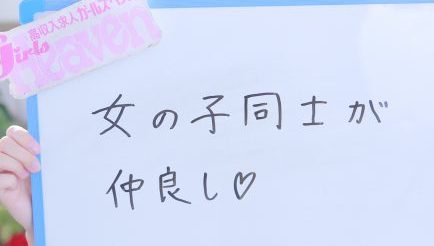 高収入求人ガールズヘブン
Girls
heaven
女の子同士が
仲良し♡